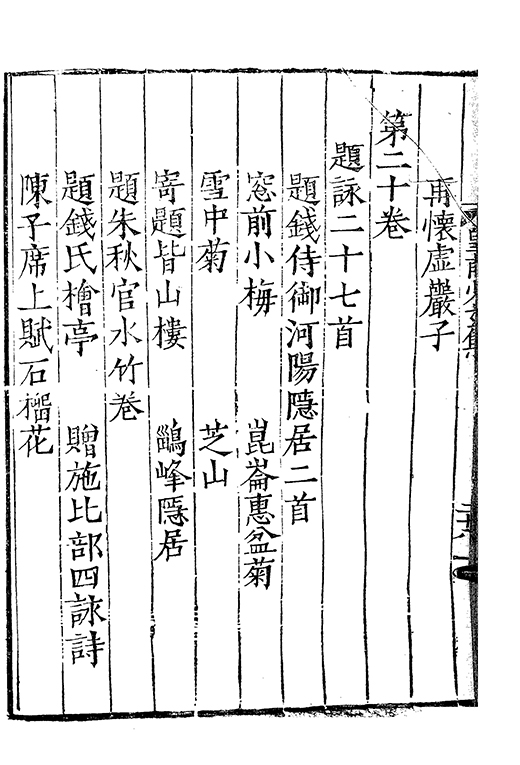 再懷虛巖子
第二十卷
題詠二十七首
題錢侍御河陽隱居二首
窓前小梅　崑崙惠盆菊
雪中菊　芝山
寄題皆山樓　峰隱居
題朱秋官水竹卷
題錢氏檜亭　贈施比部四詠詩
陳子席上賦石榴花